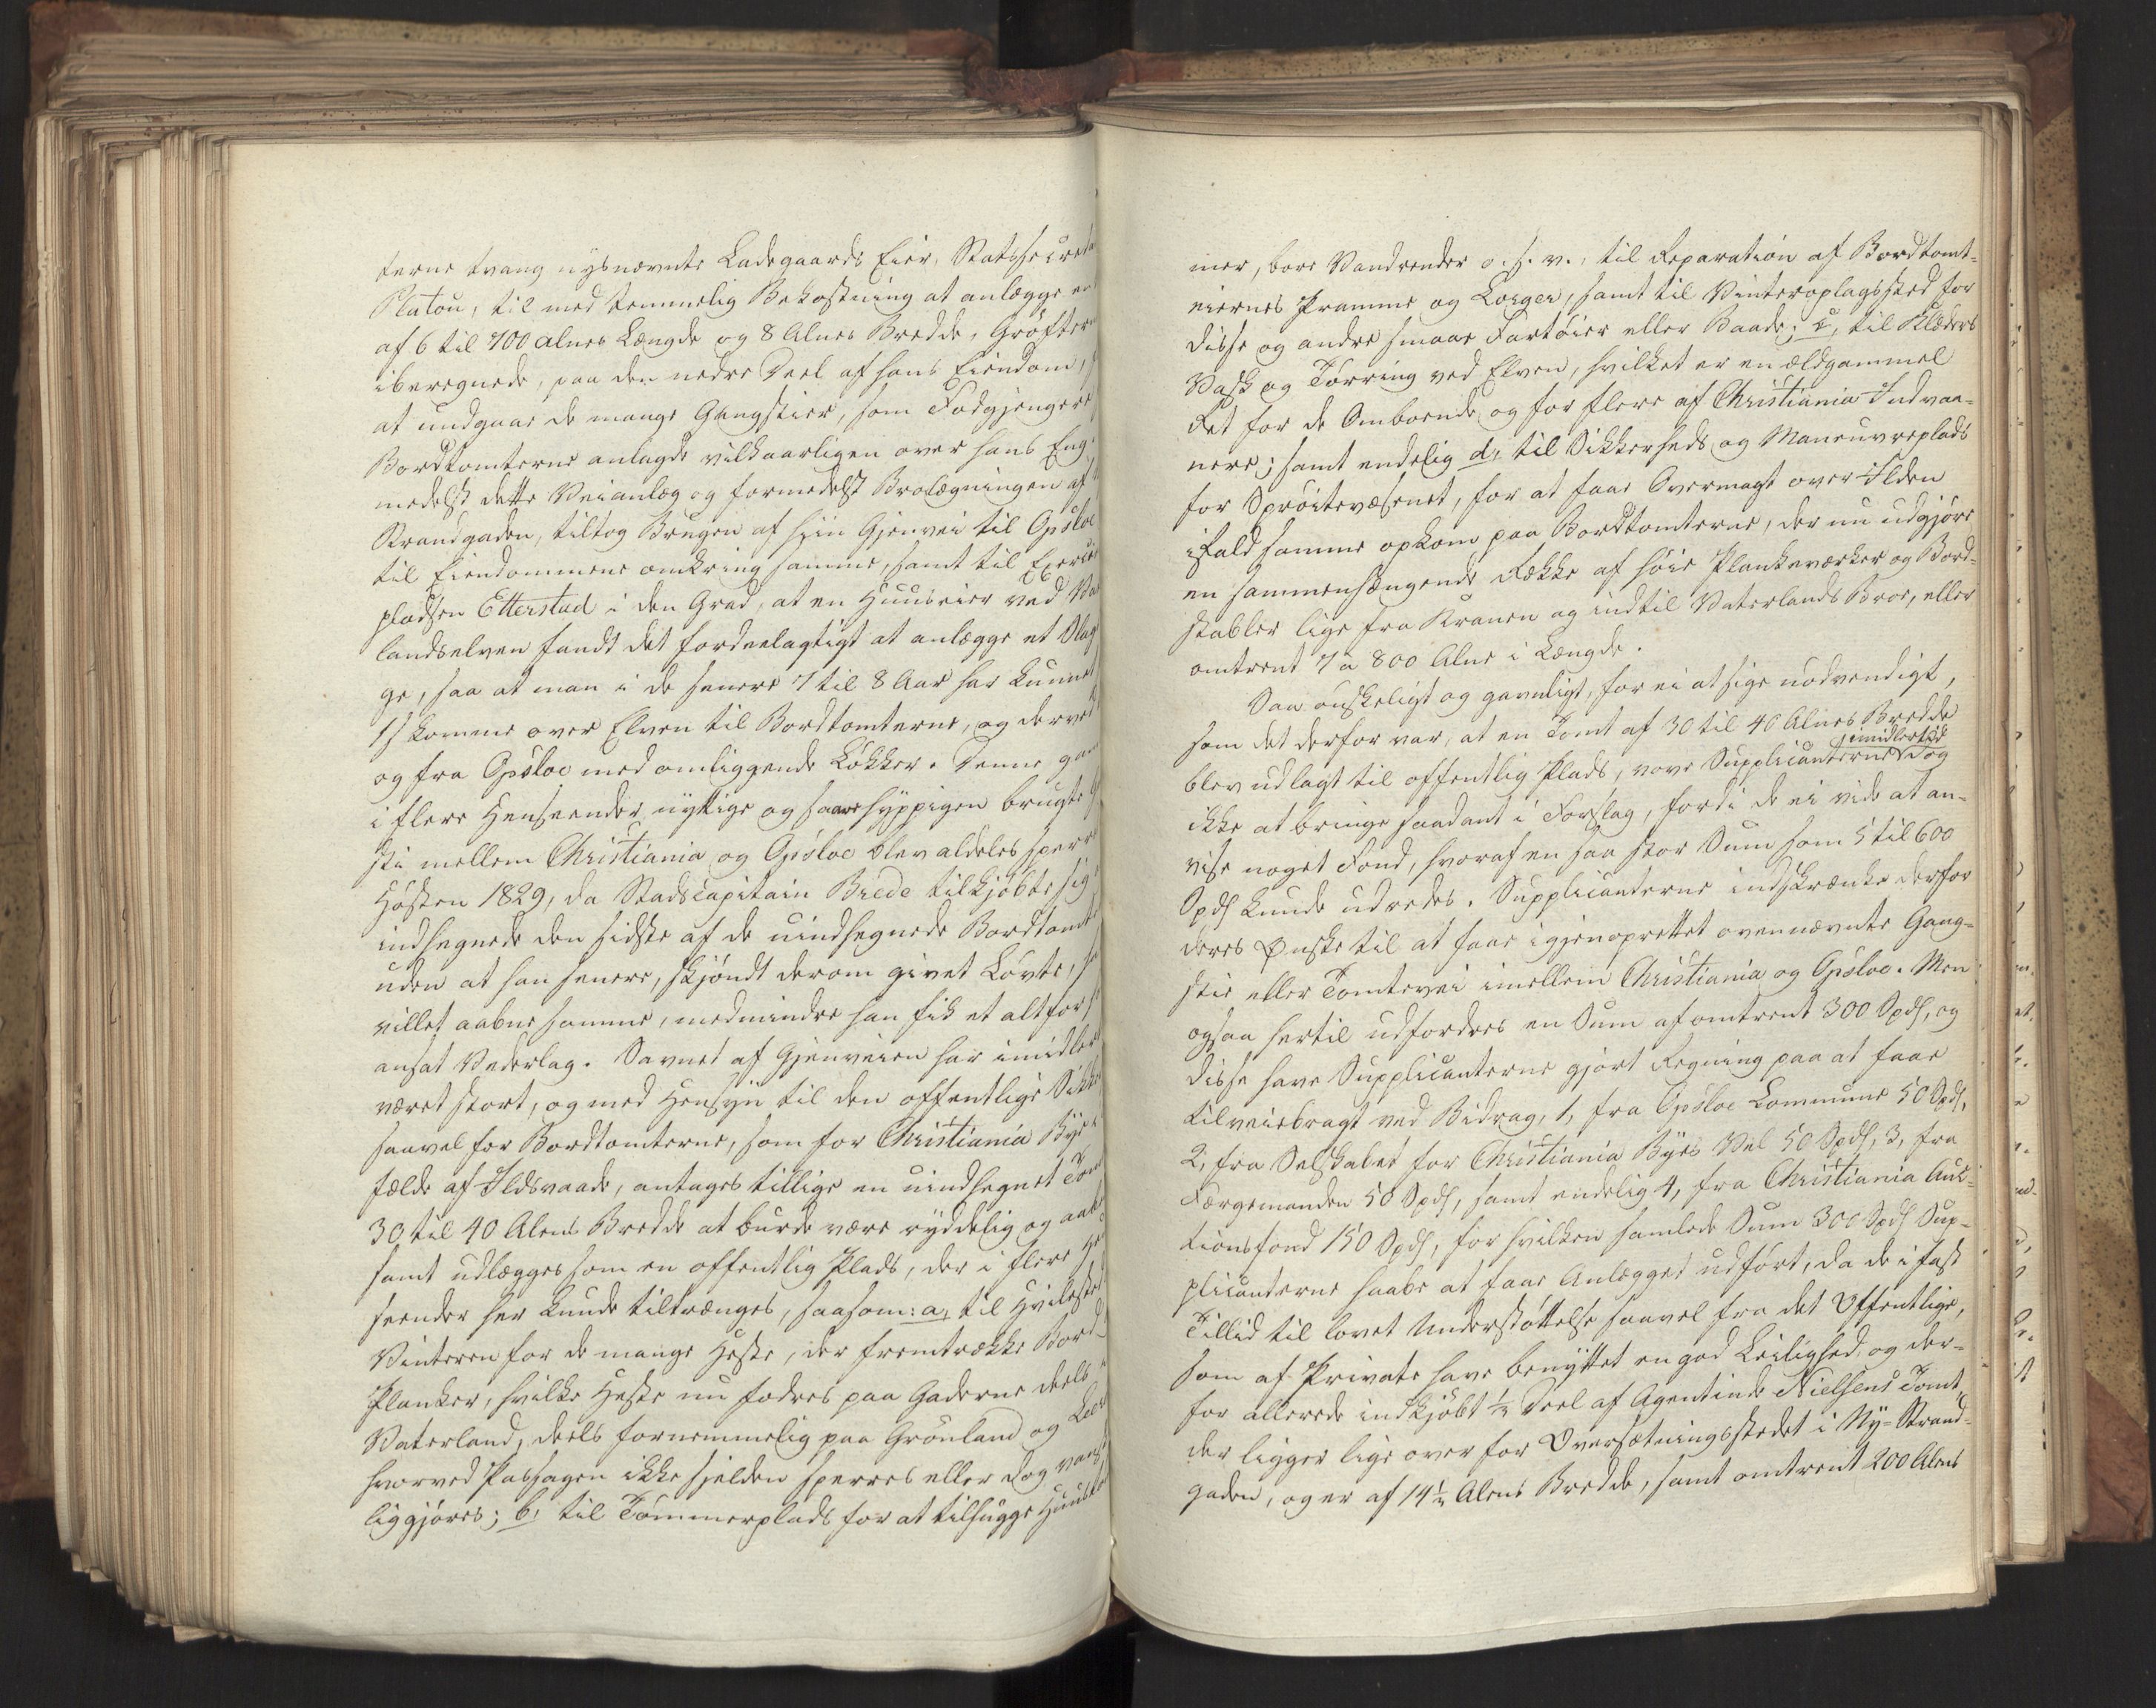 terne tvang nysnævnte Ladegaards Eier, Statssecret
Platou, til med temmelig Bekostning at anlægge en
af 6 til 700 Alnes Længde og 8 Alnes Bredde, Grøfterne
iberegnede, paa den nedre Deel af hans Eiendom,
at undgaae de mange Gangstier, som Fodgjengere
Bordtomterne anlagde vilkaarligen over hans Eng.
medelst dette Veianlæg og formedelst Brolægningen af
Strandgaden, tiltog Brugen af hiin Gjenvei til Opsloe
til Eiendommene omkring samme, samt til Exercer
pladsen Etterstad i den Grad, at en Huuseier ved Va
landselven fandt det fordeelagtigt at anlægge et Slag
ge, saa at man i de senere 7 til 8 Aar har kunnet
komme over Elven til Bordtomterne, og derved
og fra Opsloe med omliggende Løkker. Denne gam
i flere Henseender nyttige og saare hyppigen brugte
sti mellem Christiania og Opsloe blev aldeles sperre
Høsten 1829, da Stadscapitain Brede tilkjøbte sig
indhegnede den sidste af de uindhegnede Bordtomt
uden at han senere, skjøndt derom givet Løvte, ha
villet aabne samme, medmindre han fik et altfor
ansat Vederlag. Savnet af Gjenveien har imidler
været stort, og med Hensyn til den offentlige Sikke
saavel for Bordtomterne, som for Christiania Bye
fælde af Ildsvaade, antages tillige en uindhegnet Tom
30 til 40 Alens Bredde at burde være ryddelig og aabe
samt udlægges som en offentlig Plads, der i flere He
seender her kunde tiltrænges, saasom: a, til Hvilested
Vinteren for de mange Heste, der fremtrække Bord
Planker, hvilke Heste nu fodres paa Gaderne deels
Vaterland, deels fornemmelig paa Grønland og Leer
hvorved Passagen ikke sjelden sperres eller dog vans
liggjøres; b, til Tømmerplads for at tilhugge Huustøm
mer, bore Vandrender o. s. v., til Reparation af Bordtomt-
eiernes Pramme og Lorger, samt til Vinteroplagssted for
disse og andre smaae Fartøier eller Baade; c, til Klæders
Vask og Tørring ved Elven, hvilket er en ældgammel
Ret for de Omboende og for flere af Christiania Indvaa-
nere; samt endelig d, til Sikkerheds og Maneuvreplads
for Sprøitevæsenet, for at faae Overmagt over Ilden
ifald samme opkom paa Bordtomterne, der nu udgjøre
en sammenhængende Række af høie Plankeværker og Bord-
stabler lige fra Kranen og indtil Vaterlands Broe, eller
omtrent 7 a 800 Alne i Længde.
Saa ønskeligt og gavnligt, for ei at sige nødvendigt,
som det derfor var, at en Tomt af 30 til 40 Alnes Bredde
imidlertid
blev udlagt til offentlig Plads, vove Supplicanterne dog
ikke at bringe saadant i Forslag, fordi de ei vide at an-
vise noget Fond, hvoraf en saa stor Sum som 5 til 600
Spds kunde udredes. Supplicanterne indskrænke derfor
deres Ønske til at faae igjenoprettet ovennævnte Gang-
stie eller Tomtevei imellem Christiania og Opsloe. Men
ogsaa hertil udfordres en Sum af omtrent 300 Spds, og
disse have Supplicanterne gjort Regning paa at faae
tilveiebragt ved Bidrag, 1, fra Opsloe Commune 50 Spds,
2, fra Selskabet for Christiania Byes Vel 50 Spds, 3, fra
Færgemanden 50 Spds, samt endelig 4, fra Christiania Auc-
tionsfond 150 Spds, for hvilken samlede Sum 300 Spds Sup-
plicanterne haabe at faae Anlægget udført, da de i fast
Tillid til lovet Understøttelse saavel fra det Offentlige,
som af Private have benyttet en god Leilighed, og der-
for allerede indkjøbt ½ Deel af Agentinde Nielsens Tomt,
der ligger lige over for Oversætningsstedet i Ny-Strand-
gaden, og er af 14½ Alens Bredde, samt omtrent 200 Alens